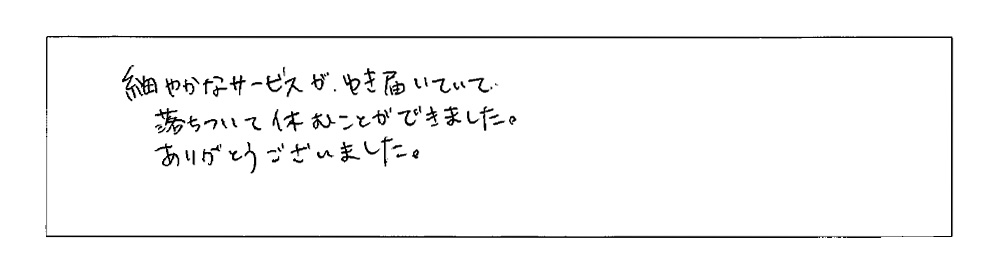 細やかなサービスが、ゆき届いていて、
落ちついて休むことができました。
ありがとうございました。